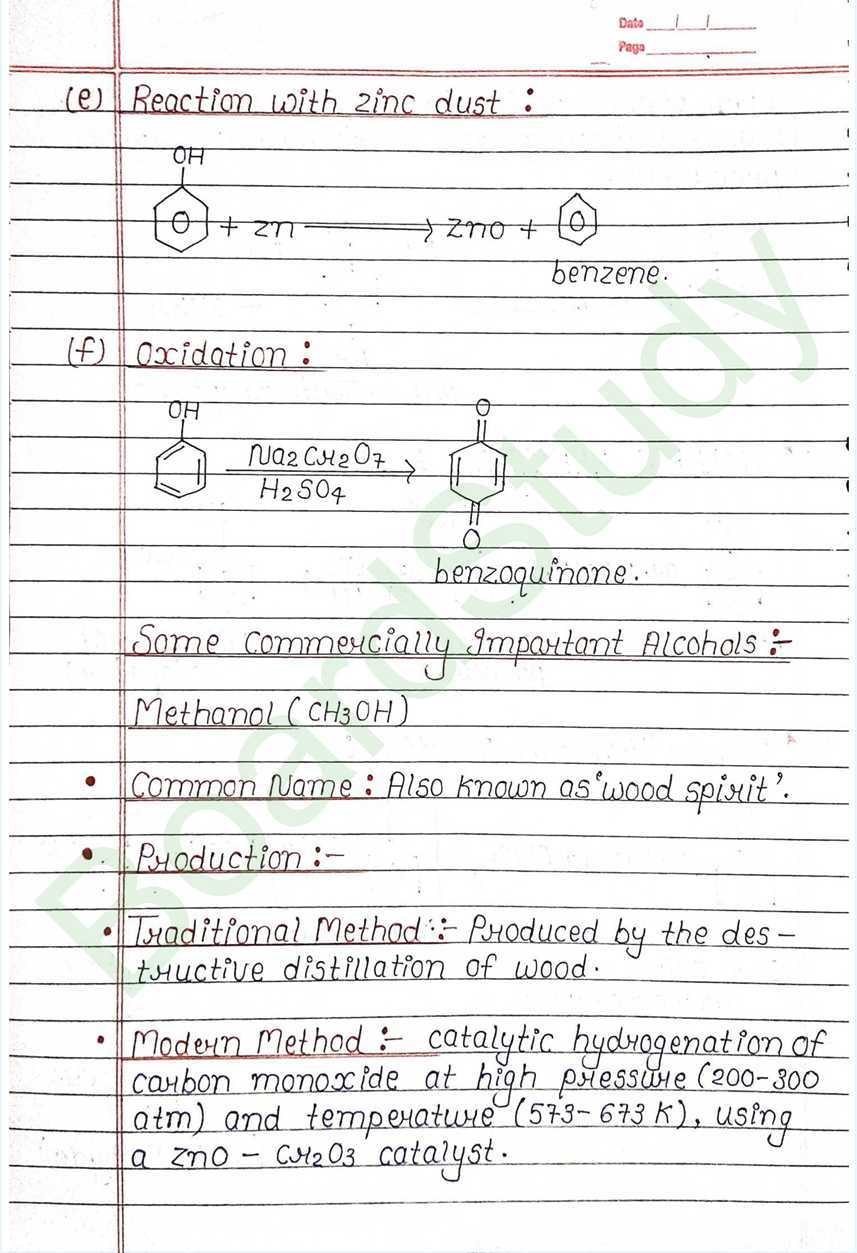 Date
Page
(e) Reaction with zinc dust :
OH
+ zn → zno +
benzene.
(f) Oxidation :
OH
O
Na2Cr2O7
H2SO4
O
benzoquinone.
Some Commercially Important Alcohols :-
Methanol (CH3OH)
• Common Name : Also known as 'wood spirit'.
• Production :-
• Traditional Method :- Produced by the des-
tructive distillation of wood.
• Modern Method :- catalytic hydrogenation of
carbon monoxide at high pressure (200-300
atm) and temperature (573-673 K), using
a zno - Cr2O3 catalyst.
BoardStudy